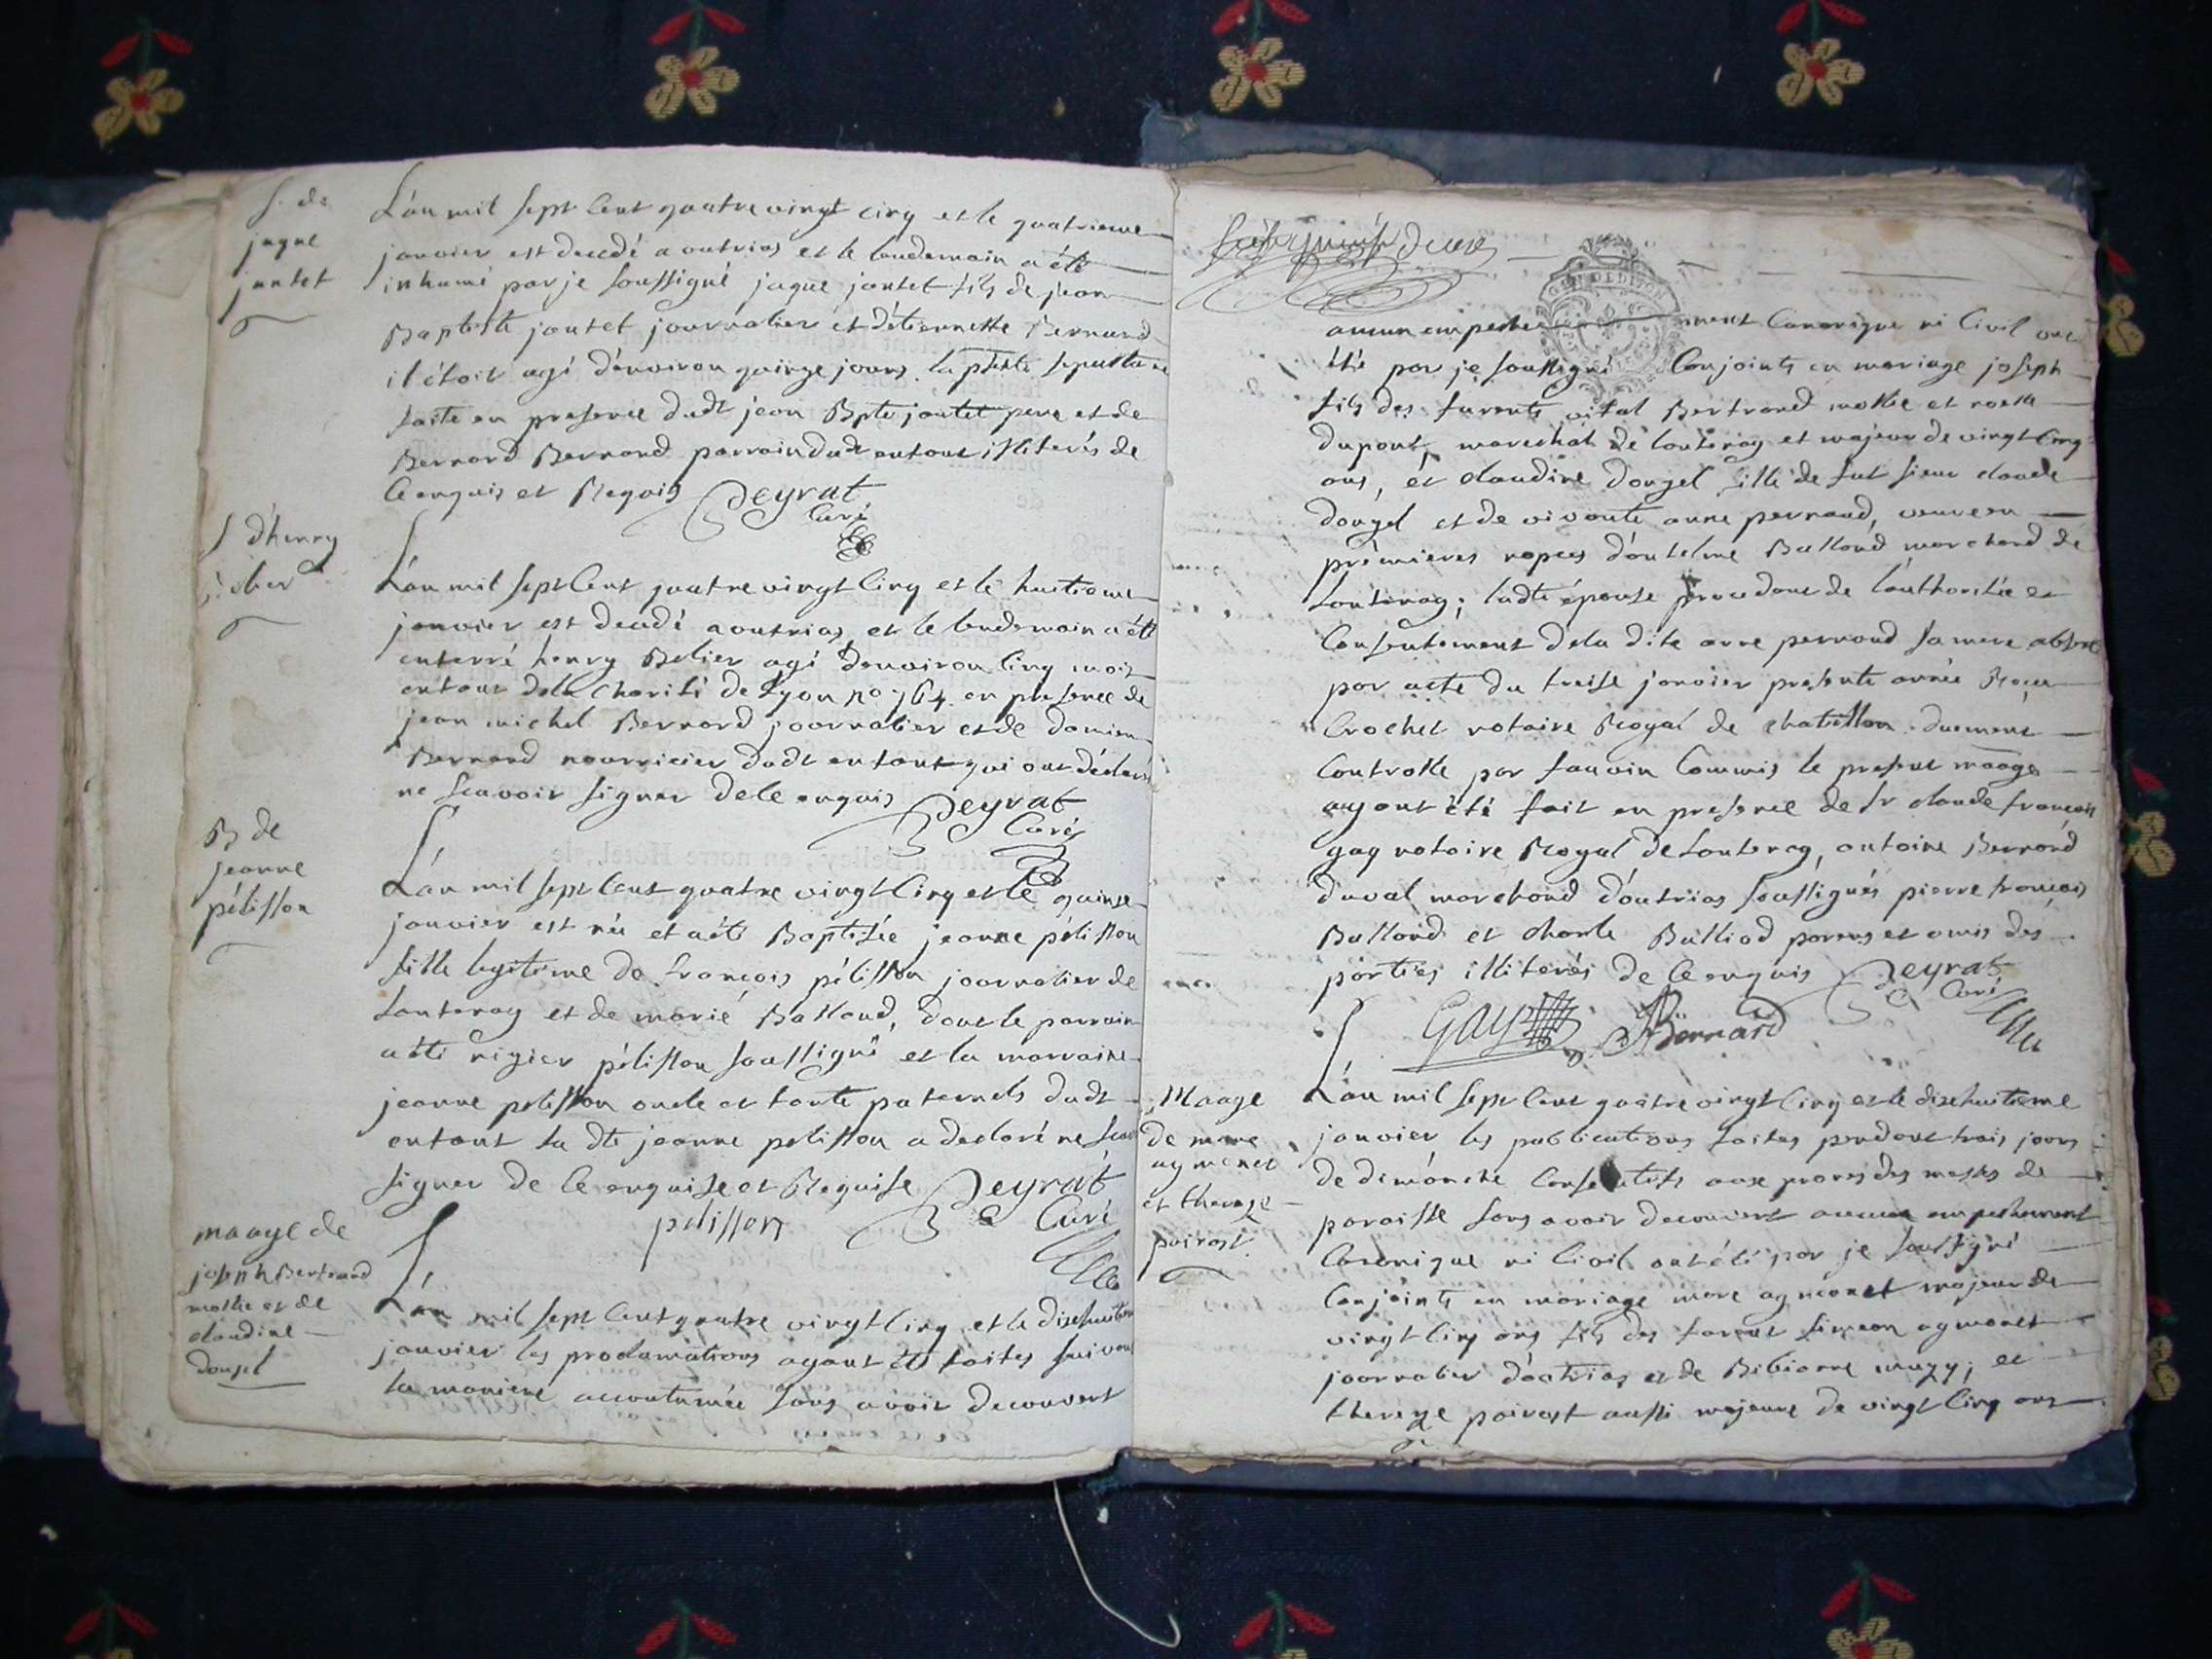 S. de
jaque
jantet
L'an mil sept cent quatre vingt cinq et le quatrieme
janvier est decedé a outrias et le lendemain a été
inhumé par je soussigné jaque jantet fils de jean
Baptiste jantet journalier et d'étiennette Bernard
il étoit agé d'environ quinze jours. la psente sepulture
faite en presence dudt jean Bpte jantet pere et de
Bernard Bernand parrain dudt enfant illiterés de
ce enquis et Requis Peyrat
Curé
S d'henry
L'an mil sept cent quatre vingt cinq et le huitieme
janvier est decedé a outrias et le lendemain a été
enterré henry Belier agé d'environ cinq mois
enfant de la Charité de Lyon no 764 en presence de
jean michel Bernard journalier et de Damien
Bernard nourricier dudt enfant qui ont déclaré
ne scavoir signer de ce enquis Peyrat
Curé
B de
jeanne
pélisson
L'an mil sept cent quatre vingt cinq et le quinze
janvier est née et a été Baptisée jeanne pélisson
fille legitime de françois pélisson journalier de
Lantenay et de marie Balland, dont le parrain
a été pélisson soussigné et la marraine
jeanne pelisson oncle et tante paternels dudt
enfant la dte jeanne pelisson a declaré ne scav
signer de ce enquise et Requise Peyrat
pelisson Curé
maage de
joseph Bertrand
mollie et de
claudine
dougel
L'an mil sept cent quatre vingt cinq et le dixhuitieme
janvier les proclamations ayant été faites suivant
la maniere accoutumée sans avoir decouvert
GEN DE DIJON
aucun empeche ment Canonique ni Civil ont
été par je soussigné Conjoints en mariage joseph
fils des furents vital Bertrand mollie et
dupont, marechal de lantenay et majeur de vingt cinq
ans, et claudine dougel fille de fut sieur claude
dougel et de vivante anne pernaud, veuve en
prèmieres nopces d'antelme Balland marchand de
Lantenay; ladte épouse procedant de l'authorité et
Consentement de la dite anne pernaud sa mere absente
par acte du treise janvier presente année Reçu
Crochet notaire Royal de chatillon duement
Controlle par fauvin Commis le present maage
ayant été fait en presence de sr claude françois
gay notaire Royal de Lantenay, antoine Bernard
duval marchand d'outrias soussignés pierre françois
Balland et charle Balliod parens et amis des
parties illiterés de ce enquis Peyrat
Curé
Gay Bernard
Maage
de marc
aymonet
et therese
poirost
L'an mil sept cent quatre vingt cinq et le dixhuitieme
janvier les publications faites pendant trois jours
de dimanche Consecutifs aux prones des messes de
paroisse sans avoir decouvert aucun empechement
Canonique ni Civil ont été par je soussigné
Conjoints en mariage marc aymonet majeur de
vingt cinq ans fils des furent simeon aymonet
journalier d'outrias et de Bibianne ; et
therese poirost aussi majeure de vingt cinq ans